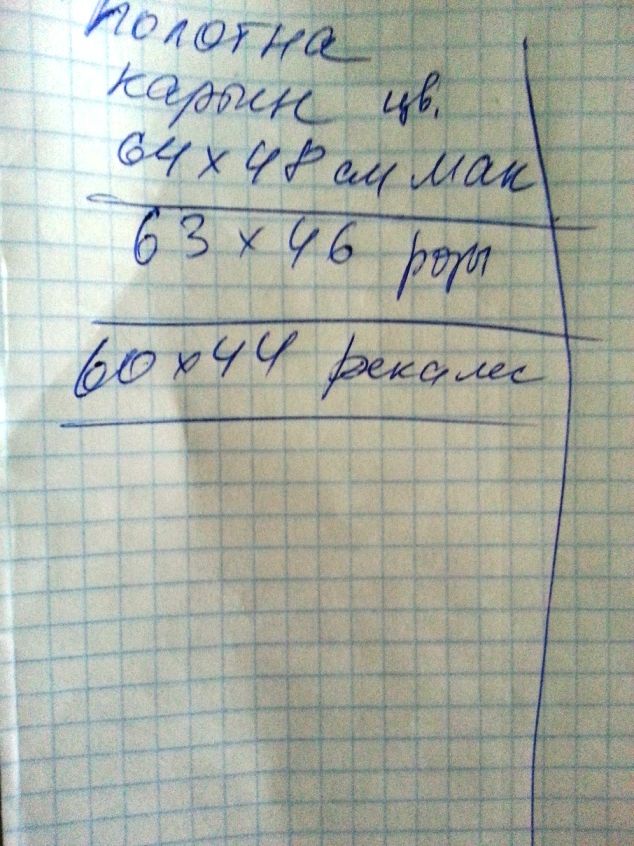 полотна
картин цв.
64 х 48 см мак
63 х 46 розы
60 х 44